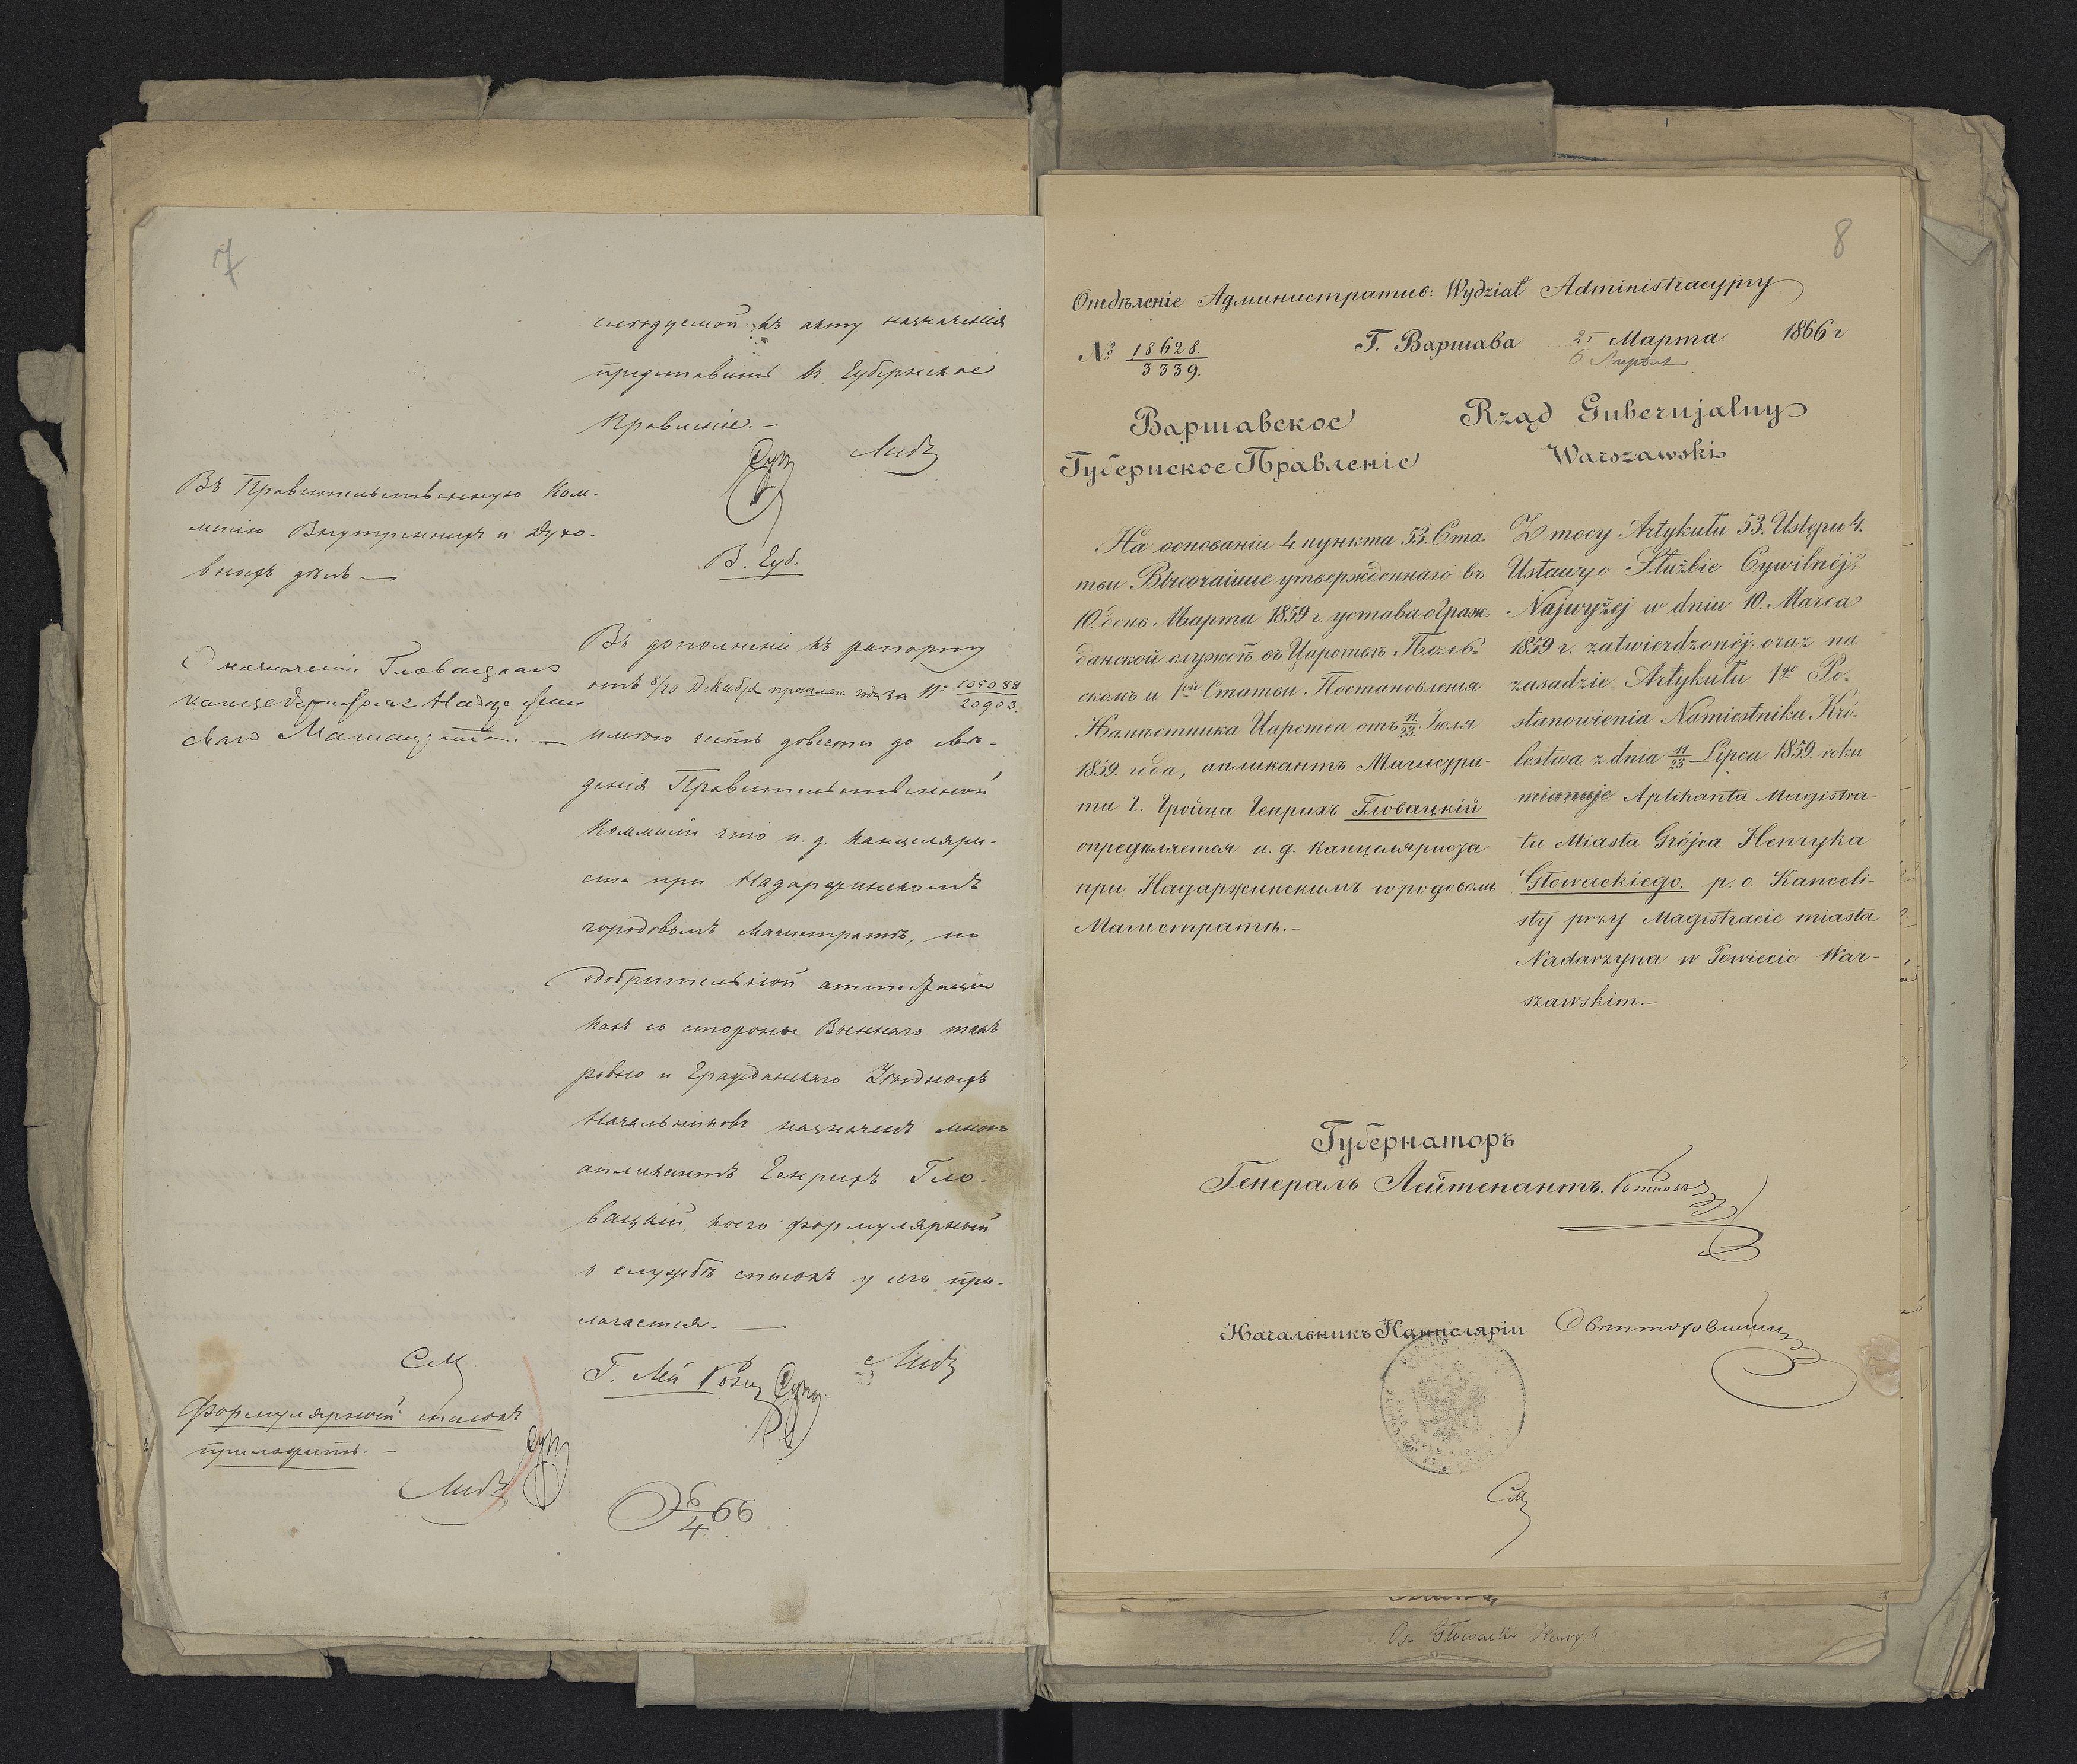 7
слѣдуемой къ акту назначенія
представить въ Губернское
Правленіе. —
В. Губ.
Въ Правительственную Ком-
мисію Внутреннихъ и Духо-
вныхъ дѣлъ —
О назначеніи Гловацкаго
Магистрата. —
Въ дополненіе къ рапорту
отъ 8/20 Декабря прошлаго года за № 105088/20903.
имѣю честь довести до свѣ-
денія Правительственной
Коммисіи что и. д. канцеляри-
ста при Надаржинскомъ
городовомъ Магистратѣ, по
одобрительной аттестаціи
какъ со стороны Военнаго такъ
равно и Гражданскаго Уѣздныхъ
Начальниковъ назначенъ мною
апликантъ Генрихъ Гло-
вацкій, коего формулярный
о службѣ списокъ у сего при-
лагается. —
Формулярный списокъ
приложить. —
6/4 66
8
Отдѣленіе Административ: Wydział Administracyjny
№ 18628./3339.
Г. Варшава 25 Марта 1866 г
6 Апрѣля
Варшавское
Губернское Правленіе
Rząd Gubernjalny
Warszawski
На основаніи 4. пункта 53. Ста
тьи Высочайше утвержденнаго въ
10. день Марта 1859 г. устава о Граж-
данской службѣ въ Царствѣ Поль-
скомъ и 1ой Статьи Постановленія
Намѣстника Царства отъ 11/23 Іюля
1859. года, апликантъ Магистра-
та г. Гройца Генрихъ Гловацкій
опредѣляется и. д. канцеляриста
при Надаржинскимъ городовомъ
Магистратѣ. —
Z mocy Artykułu 53. Ustępu 4.
Ustawy o Służbie Cywilnéj,
Najwyżej w dniu 10. Marca
1859 r. zatwierdzonéj, oraz na
zasadzie Artykułu 1go Po-
stanowienia Namiestnika Kró-
lestwa z dnia 11/23 Lipca 1859. roku
mianuje Aplikanta Magistra-
tu Miasta Grójca Henryka
Głowackiego p. o. Kanceli-
sty przy Magistracie miasta
Nadarzyna w Powiecie War-
szawskim. —
Губернаторъ
Генералъ Лейтенантъ.
Начальникъ Канцеляріи
Głowacki Henryk